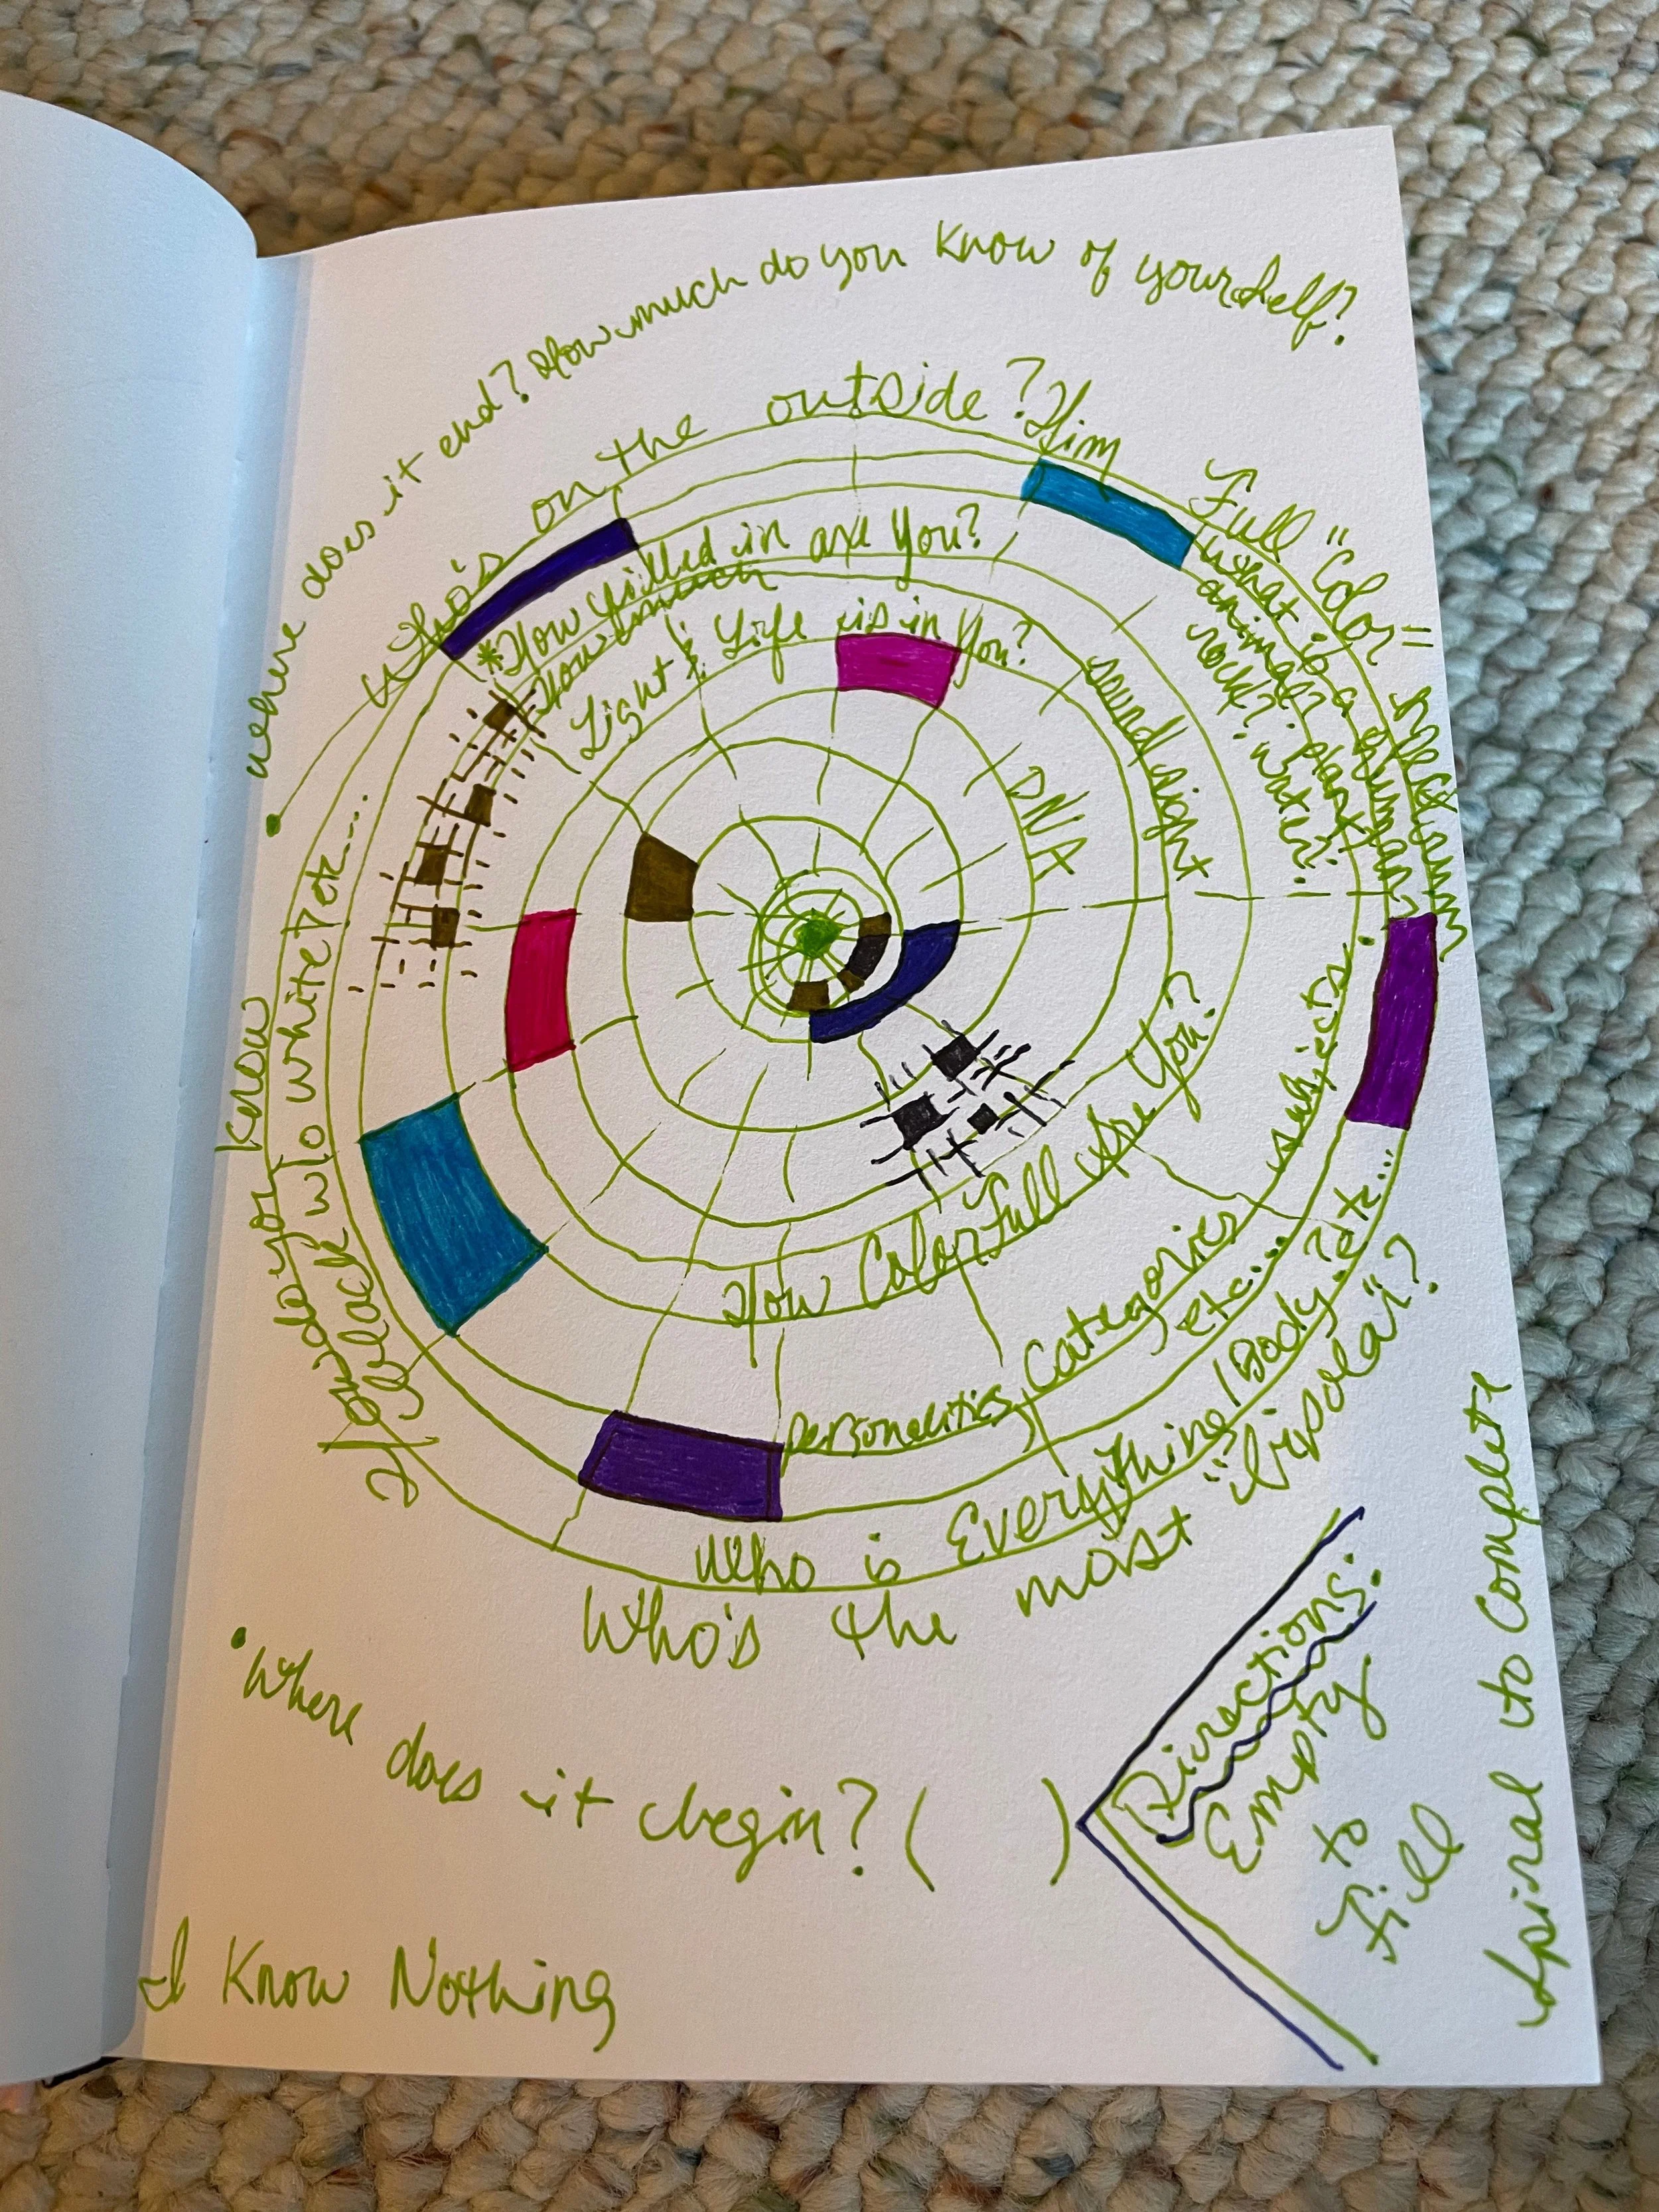 • where does it end? How much do you know of yourself?
Who's on the outside? Him
Full "Color" Spectrum
What is a human?
animal? plant?
rock? water?
*How filled in are You?
How much
Light & Life is in You?
sound sight
DNA
How do you know
Black w/o white? etc....
How Colorfull Are You?
personalities, Categories, subjects.
etc...
Who is Everything/Body? etc...
Who's the most "bipolar"?
• Where does it begin? ( )
Directions:
Empty
to
Fill
Spiral to Complete
I Know Nothing